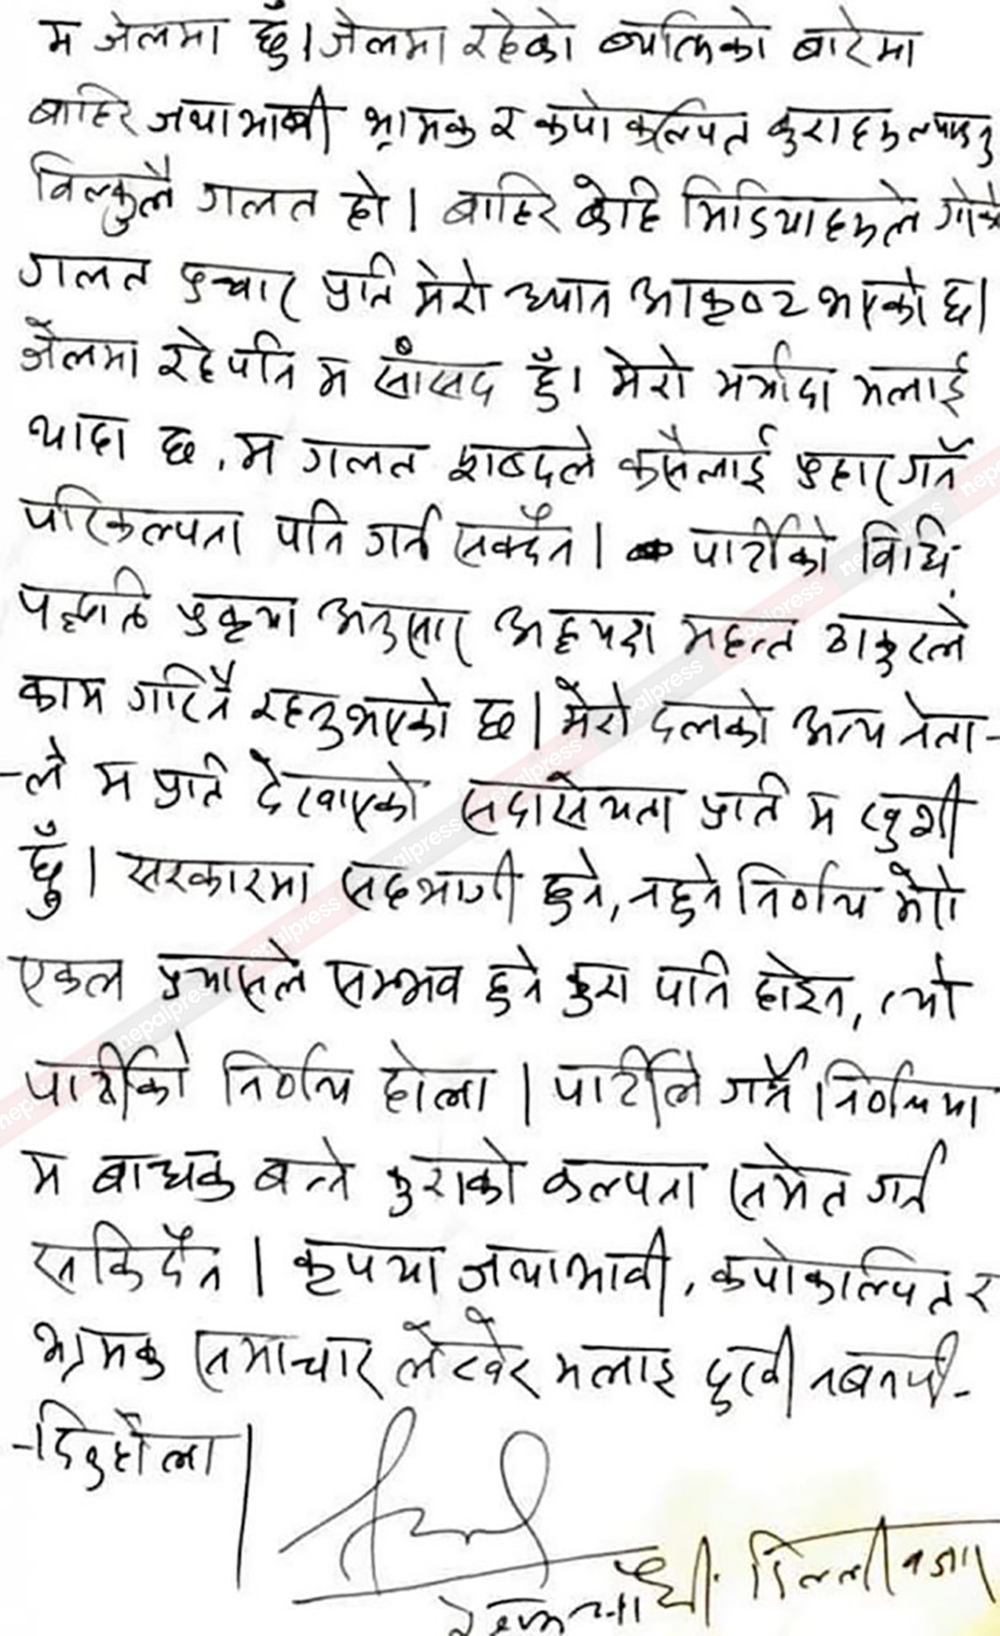 म जेलमा छुँ। जेलमा रहेको ब्यक्तिको बारेमा
बाहिर जथाभाबी भ्रामक र कपोकल्पित कुराहरु ल्याउनु
बिल्कुलै गलत हो। बाहिर केहि मिडियाहरुले गरेको
गलत प्रचार प्रति मेरो ध्यान आकृष्ट भएको छ।
जेलमा रहे पनि म सांसद हुँ। मेरो मर्यादा मलाई
थाहा छ, म गलत शब्दले कसैलाई प्रहार गर्ने
परिकल्पना पनि गर्न सक्दैन। पार्टीको विधि
पद्धति प्रकृया अनुसार अध्यक्ष महन्त ठाकुरले
काम गरिनै रहनुभएको छ। मेरो दलको अन्य नेता-
-ले म प्रति देखाएको सदासयता प्रति म खुशी
छुँ। सरकारमा सहभागी हुने, नहुने निर्णय मेरो
एकल प्रयासले सम्भव हुने कुरा पनि होइन, त्यो
पार्टीको निर्णय होला। पार्टीले गर्ने निर्णयमा
म बाधक बन्ने कुराको कल्पना समेत गर्न
सकिदैन। कृपया जथाभावी, कपोकल्पित र
भ्रामक समाचार लेखेर मलाइ दुखी नबनाई-
-दिनुहोला।
रेशमचौधरी डिल्लीबजार
nepalpress